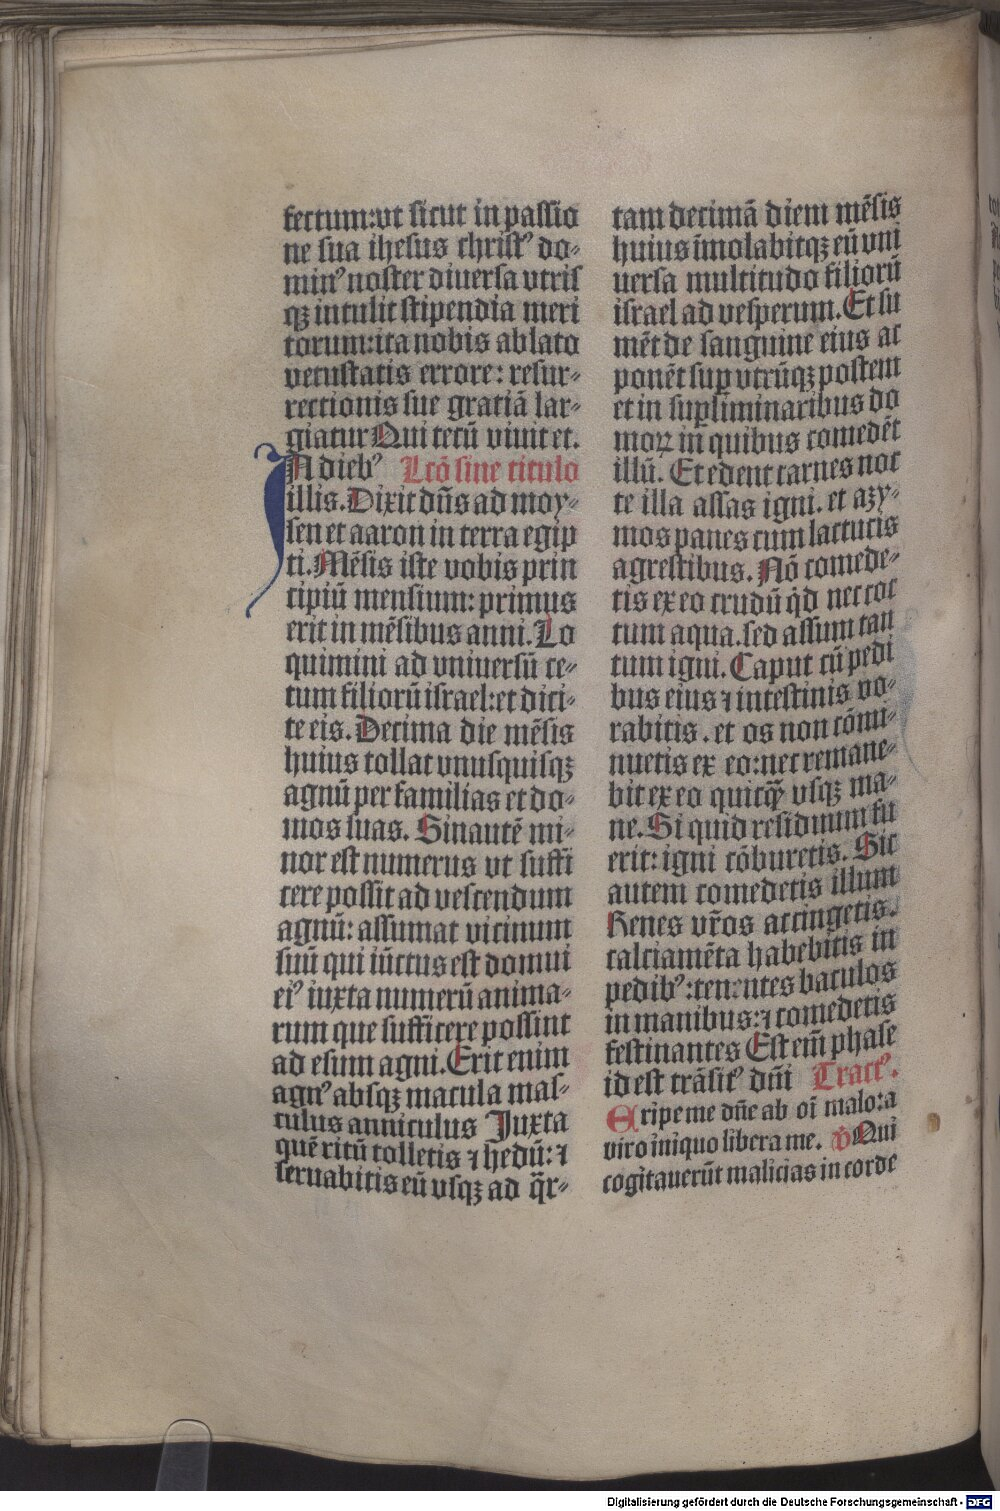 fectum:vt sicut in passio
ne sua ihesus christꝰ do-
minꝰ noster diuersa vtris
qꝫ intulit stipendia meri
torum:ita nobis ablato
vetustatis errore: resur-
rectionis sue gratiā lar-
giatur Qui tecū viuit et.
IN diebꝰ Lcō sine titulo
illis. Dixit dn̄s ad moy-
sen et aaron in terra egip
ti. Mēsis iste vobis prin
cipiū mensium: primus
erit in mēsibus anni. Lo
quimini ad vniuersū ce-
tum filiorū israel: et dici-
te eis. Decima die mēsis
huius tollat vnusquisqꝫ
agnū per familias et do-
mos suas. Sinautē mi-
nor est numerus vt suffi
cere possit ad vescendum
agnū: assumat vicinum
suū qui iūctus est domui
eiꝰ iuxta numerū anima-
rum que sufficere possint
ad esum agni. Erit enim
agnꝰ absqꝫ macula mas-
culus anniculus Juxta
quē ritū tolletis ⁊ hedū: ⁊
seruabitis eū vsqꝫ ad q̄r-
tam decimā diem mēsis
huius īmolabitqꝫ eū vni
uersa multitudo filiorū
israel ad vesperum. Et su
mēt de sanguine eius ac
ponēt suꝑ vtrūqꝫ postem
et in suꝑliminaribus do
moꝝ in quibus comedēt
illū. Et edent carnes noc
te illa assas igni. et azy-
mos panes cum lactucis
agrestibus. Nō comede-
tis ex eo crudū q̇d nec coc
tum aqua. sed assum tan
tum igni. Caput cū pedi
bus eius ⁊ intestinis vo-
rabitis. et os non cōmi-
nuetis ex eo: nec remane-
bit ex eo quicq̄ꝫ vsqꝫ ma-
ne. Si quid residuum fu
erit: igni cōburetis. Sic
autem comedetis illum
Renes vr̄os accingetis.
calciamēta habebitis in
pedibꝰ: tenentes baculos
in manibus: ⁊ comedetis
festinantes Est em̄ phase
id est trāsitꝰ dn̄i Tractꝰ.
Eripe me dn̄e ab oī malo: a
viro iniquo libera me. ℣ Qui
cogitauerūt malicias in corde
Digitalisierung gefördert durch die Deutsche Forschungsgemeinschaft - DFG